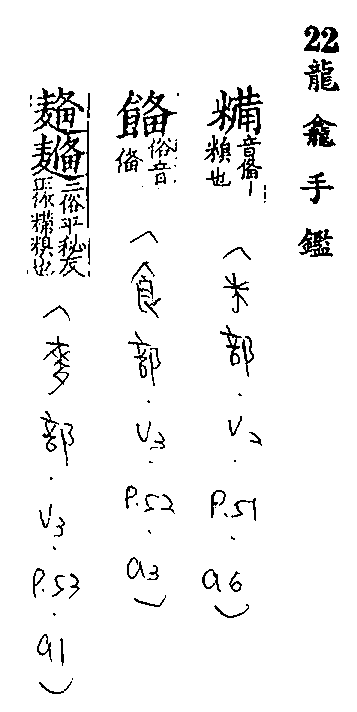 22龍龕手鑑
糒音俻糗也(米部.V2.P.51.a6)
俗音俻(食部.V3.P.52.a3)
三俗平秘反正作糒糗也(麥部.V3.P.53.a1)